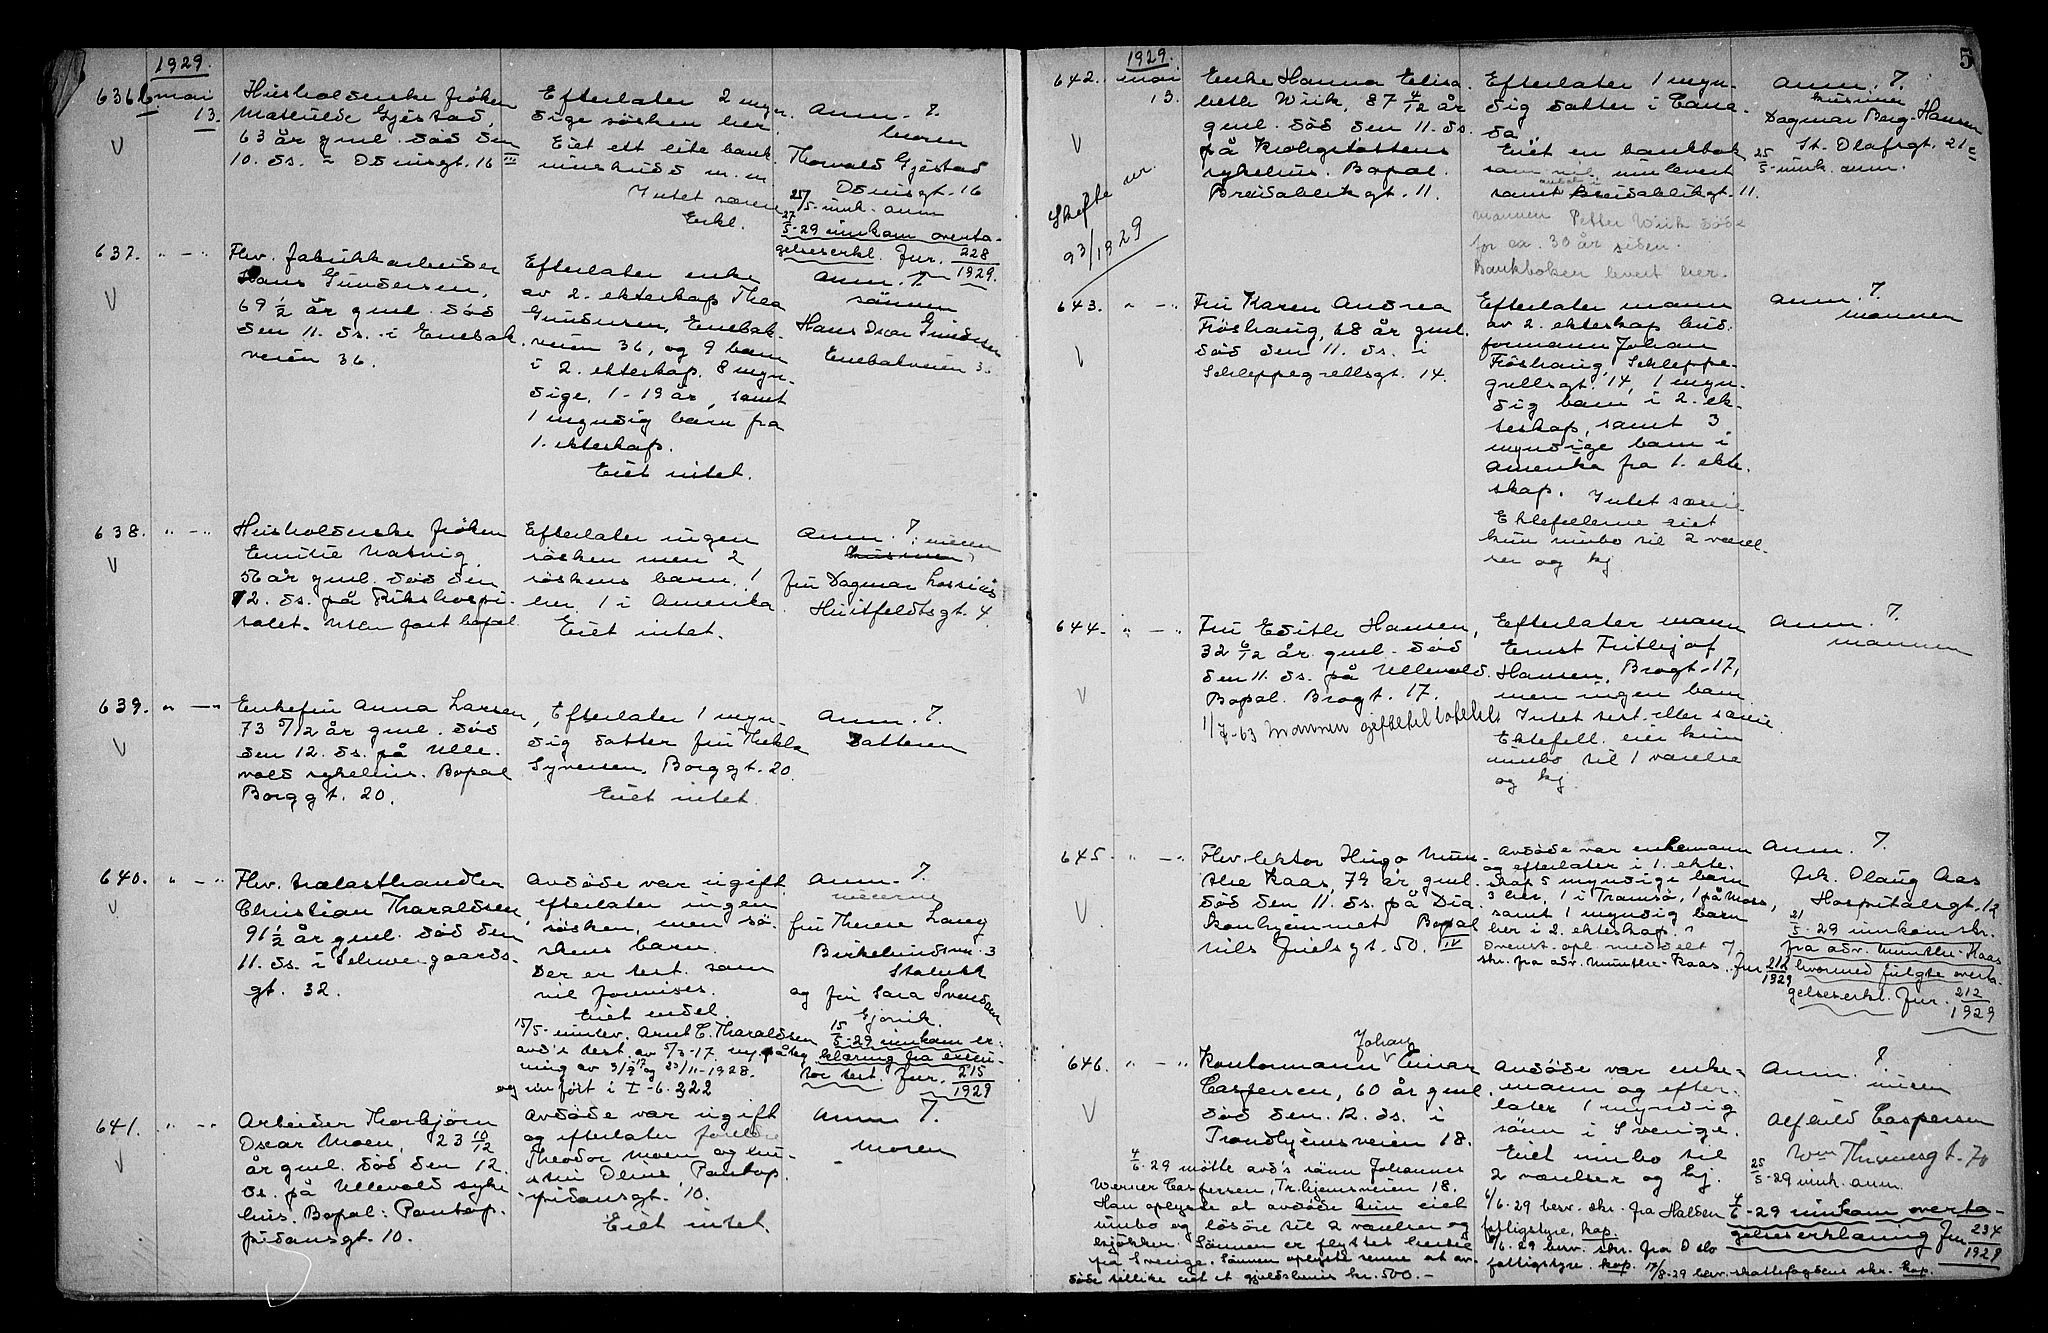 1929.
636. mai 13.
Husholderske frøken
Mathilde Gjestad,
63 år gml. død den
10. ds. - Odinsgt. 16 IV
Efterlater 2 myn.
dige søsken her.
Eiet ett lite bank
innskudd m. m.
Intet særeie
Erkl.
Anm. 7.
broren
Thorvald Gjestad
Odinsgt. 16
25/5 - innk. anm
27/5-29 innkom overta-
gelseserkl. Jnr. 228/1929.
637. " — "
Fhv. fabrikkarbeider
Hans Gundersen,
69 1/2 år gml. død
den 11. ds. i Enebak.
veien 36.
Efterlater enke
av 2. ekteskap Thea
Gundersen, Enebak.
veien 36, og 9 barn
i 2. ekteskap, 8 myn-
dige, 1 - 19 år, samt
1 myndig barn fra
1. ekteskap.
Eiet intet.
Anm. 7.
sønnen
Hans Oscar Gundersen
Enebakveien 3.
638. " — "
Husholderske frøken
Emilie Natvig
56 år gml. død den
12. ds. på Rikshospi-
talet. Uten fast bopal
Efterlater ingen
søsken men 2
søskens barn. 1
her. 1 i Amerika.
Eiet intet.
Anm. 7.
niesen
fru Dagmar Lossius
Huitfeldtsgt. 4.
639. " — "
Enkefru Anna Larsen,
73 5/12 år gml. død
den 12. ds. på Ulle.
vold sykehus. Bopal
Borggt. 20.
Efterlater 1 myn-
dig datter fru Thekla
Syversen, Borggt. 20.
Eiet intet.
Anm. 7.
Datteren
640. " — "
Fhv. trælasthandler
Christian Tharaldsen,
91 1/2 år gml. død den
11. ds. i Schweigaards-
gt. 32.
Avdøde var ugift
efterlater ingen
søsken, men sø-
skens barn.
Der er test. som
vil fremvises.
Eiet endel.
15/5- innlev. Arnt C. Tharaldsen
avd's test. av 5/3-17 m. påteg
ning av 9/9 17 og 23/11-1928.
og innført i I - 6.322
Anm. 7.
niecerne
fru Therese Lang
Birkelundsvei 3
Stabekk
og fru Sara Svendsen
Gjøvik.
15/5-29 innkom er-
klæring fra execu-
tor test. Jnr. 215/1929
641. " — "
Arbeider Thorbjørn
Oscar Moen, 23 10/12
år gml. død den 12.
ds. på Ullevold syke
hus. Bopal: Pontop.
pidansgt. 10.
Avdøde var ugift
og efterlater foreldre
Theodor Moen og hu-
stru Oline, Pontop.
pidansgt. 10.
Eiet intet.
Anm 7.
Moren
5
1929.
642. mai 13.
Skifte nr.
93/1929
Enke Hanna Elisa
beth Wiik, 87 4/12 år
gml. død den 11. ds.
på Krohgstøttens
sykehus. Bopal.
Breidablikgt. 11.
Efterlater 1 myn-
dig datter i Cana-
da.
Eiet en bankbok
som vil, innlevert
samt Breidablikgt. 11.
Mannen Petter Wiik død
for ca. 30 år siden.
Bankboken levert her.
Anm. 7.
kusinen
Dagmar Borg-Hansen
St. Olafsgt. 21 c
25/5 - innk. anm.
643. " — "
Fru Karen Andrea
Frøshaug, 68 år gml.
død den 11. ds. i
Schleppegrellsgt. 14.
Efterlater mann
av 2. ekteskap bud.
formann Johan
Frøshaug, Schleppe-
grellsgt. 14, 1 myn-
dig barn i 2. ek-
teskap, samt 3
myndige barn i
Amerika fra 1. ekte.
skap. Intet særeie
Ektefellene eiet
kun innbo til 2 værel-
ser og kj.
Anm. 7.
mannen
644. " — "
Fru Edith Hansen,
32 6/12 år gml. død
den 11. ds. på Ullevold.
Bopal. Brogt. 17.
1/7-63 Mannen
Efterlater mann
Ernst Frithjof
Hansen, Brogt. 17,
men ingen barn
Intet test. eller særeie.
Ektefell. eier kun
innbo til 1 værelse
og kj.
Anm. 7.
mannen
645. " — "
Fhv. lektor Hugo Mun-
the Kaas, 79 år gml.
død den 11. ds. på Dia
konhjemmet Bopal
Nils Juelsgt. 50. IV
Avdøde var enkemann
og efterlater i 1. ekte.
skap 5 myndige barn
3 her, 1 i Tromsø, 1 på Moss,
samt 1 myndig barn
her i 2. ekteskap.
Ovenst. opl. meddelt
skr. fra adv. Munthe-Kaas. Jnr 212/1929
Anm. 7.
frk. Olaug Aas
Hospitalsgt. 12
21/5-29 innkom skr.
fra adv. Munthe-Kaas
hvormed fulgte overta-
gelseserkl. Jnr. 212/1929
646. " — "
Kontormann Johan Einar
Caspersen, 60 år gml.
død den. 12. ds. i
Trondhjemsveien 18.
Avdøde var enke-
mann og efter-
later 1 myndig
sønn i Sverige.
Eiet innbo til
2 værelser og kj.
Anm. 7
niesen
Alfhild Caspersen
Wm Thranesgt. 70
25/5-29 innk. anm.
4/6-29 innkom overta-
gelseserklæring Jnr 234/1929
4/6-29 møtte avd's sønn Johannes
Werner Caspersen, Tr.hjemsveien 18.
Han oplyste at avdøde kun eiet
innbo og løsøre til 2 værelser og
kjøkken. Sønnen er flyttet hertil
fra Sverige. Sønnen oplyste senere at av-
døde tillike eiet et gjeldsbevis kr. 500.-
6/6-29 besv. skr. fra Halden
fattigstyre, kop.
8/6-29 besv. skr. fra Oslo
fattigstyre. kop. 17/8-29 besv. skattefogdens skr. kop.